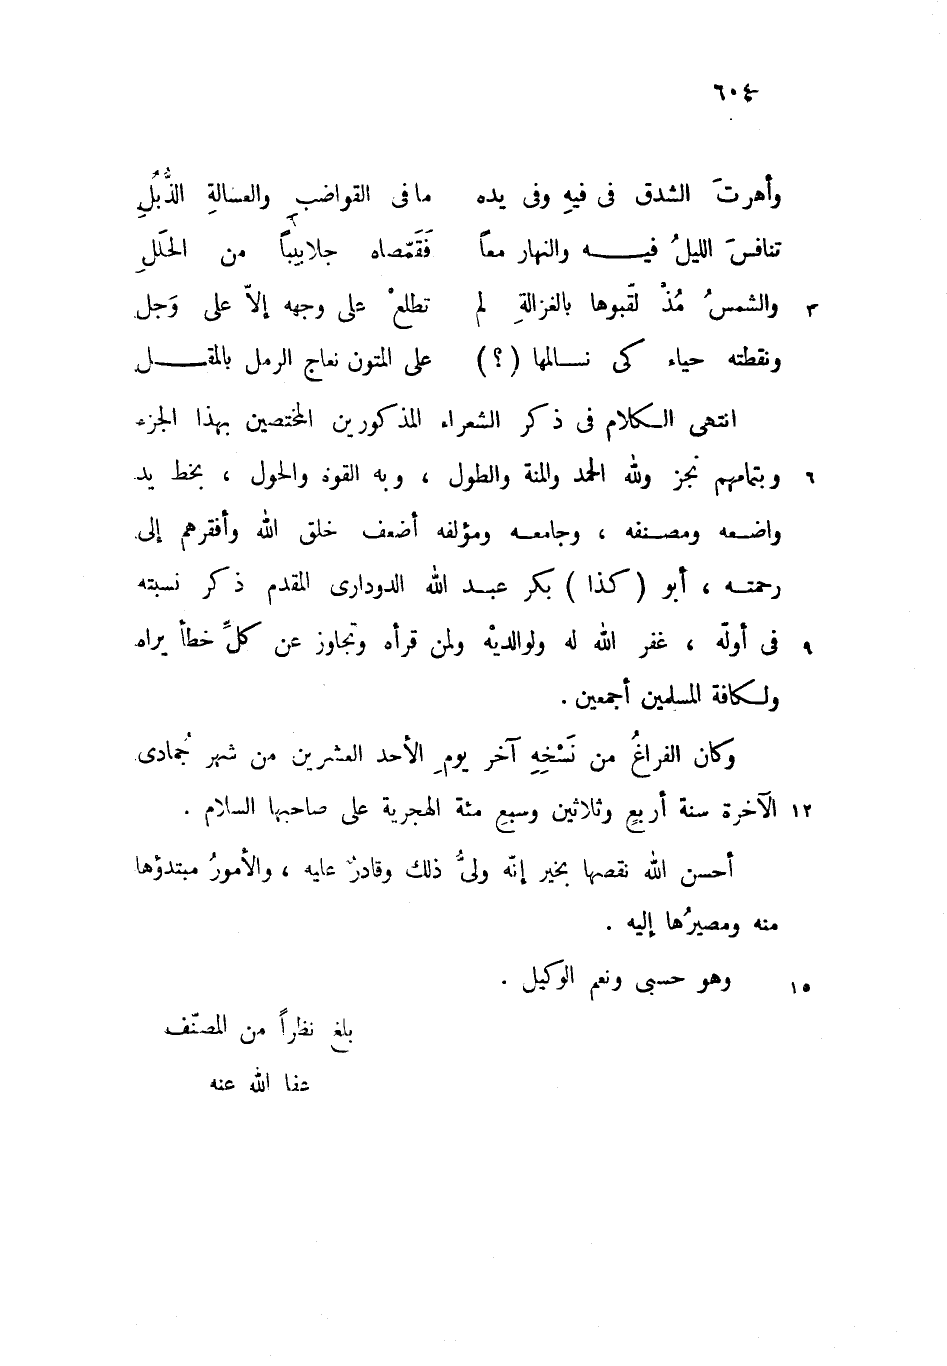 ٦٠٤
وأهرتَ الشدق فى فيهِ وفى يده ما فى القواضبِ والعسالةِ الذُّبُلِ
تنافسَ الليلُ فيــه والنهار معاً فَقَمّصاه جلابيباً من الحَلَلِ
٣ والشمسُ مُذْ لقّبوها بالغزالةِ لم تطلعْ على وجهه إلاّ على وَجل
ونقطته حياء كى نـسالمها (؟) على المتون نعاج الرمل بالمقــل
انتهى الـكلام فى ذكر الشعراء المذكورين المختصين بهذا الجزء
٦ وبتمامهم نجز ولله الحمد والمنة والطول ، وبه القوة والحول ، بخط يد
واضـعه ومصـنفه ، وجامعـه ومؤلفه أضعف خلق الله وأفقرهم إلى
رحمتـه ، أبو (كذا) بكر عبـد الله الدودارى المقدم ذكر نسبته
٩ فى أولّه ، غفر الله له ولوالديْه ولمن قرأه وتجاوز عن كلِّ خطأ يراه
ولـكافة المسلمين أجمعين .
وكان الفراغُ من نَسْخِهِ آخر يومِ الأحد العشرين من شهر جُمادى
١٢ الآخرة سنة أربعٍ وثلاثين وسبعِ مئة الهجرية على صاحبها السلام .
أحسن الله نقصها بخير إنّه ولىُّ ذلك وقادرٌ عليه ، والأمورُ مبتدؤها
منه ومصيرُها إليه .
١٥ وهو حسبى ونعم الوكيل .
بلغ نظراً من المصنّف
عفا الله عنه